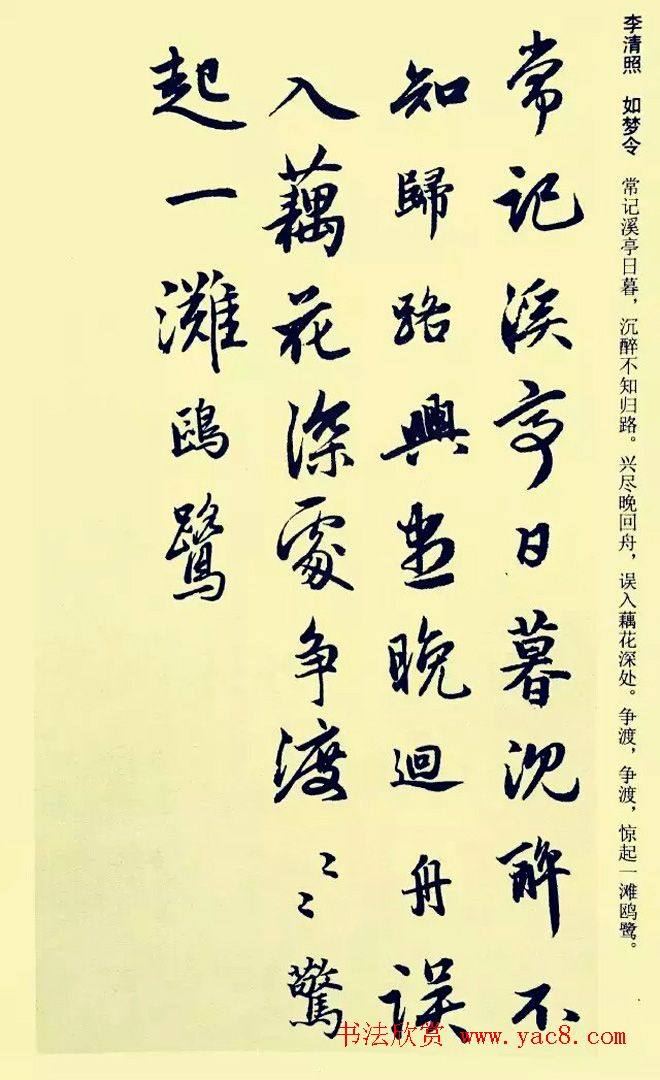 李清照 如梦令 常记溪亭日暮，沉醉不知归路。兴尽晚回舟，误入藕花深处。争渡，争渡，惊起一滩鸥鹭。
常记溪亭日暮沉醉不
知歸路興盡晚迴舟誤
入藕花深處争渡〻〻驚
起一灘鷗鷺
书法欣赏 www.yac8.com